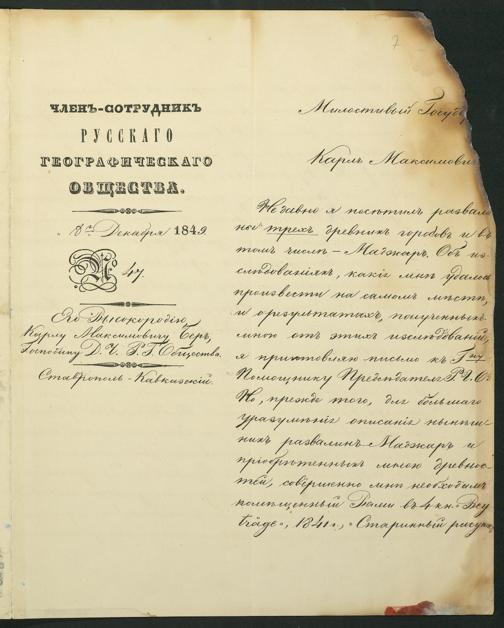 7
ЧЛЕНЪ-СОТРУДНИКЪ
РУССКАГО
ГЕОГРАФИЧЕСКАГО
ОБЩЕСТВА.
„8го Декабря 1849
№ 47.
Его Высокородію,
Карлу Максимовичу Беръ,
Господину Д. Ч. Р. Г. Общества.
Ставрополь-Кавказскій.
Милостивый Госуд
Карлъ Максимович
Недавно я посѣтилъ развали
ны трехъ древнихъ городовъ и въ
томъ числѣ – Маджаръ. Объ из-
слѣдованіяхъ, какія мнѣ удалось
произвести на самомъ мѣстѣ,
и о результатахъ, полученныхъ
мною отъ этихъ изслѣдованій,
я приготовляю письмо къ Гну
Помощнику Предсѣдателя Р. Г. О
Но, прежде того, для большаго
уразумѣнія описанія нынѣш-
нихъ развалинъ Маджаръ и
пріобрѣтенныхъ мною древнос-
тей, совершенно мнѣ необходимъ
помѣщенный Вами въ 4 кн. „Bey
träge“, 1841 г., „Старинный рисун